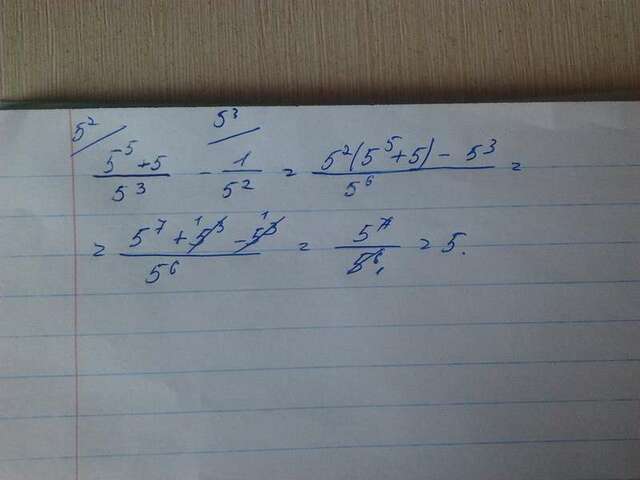 5² / 5³ /
(5⁵+5)/5³ - 1/5² = (5²(5⁵+5) - 5³)/5⁶ =
= (5⁷ + 5³ - 5³)/5⁶ = 5⁷/5⁶ = 5.